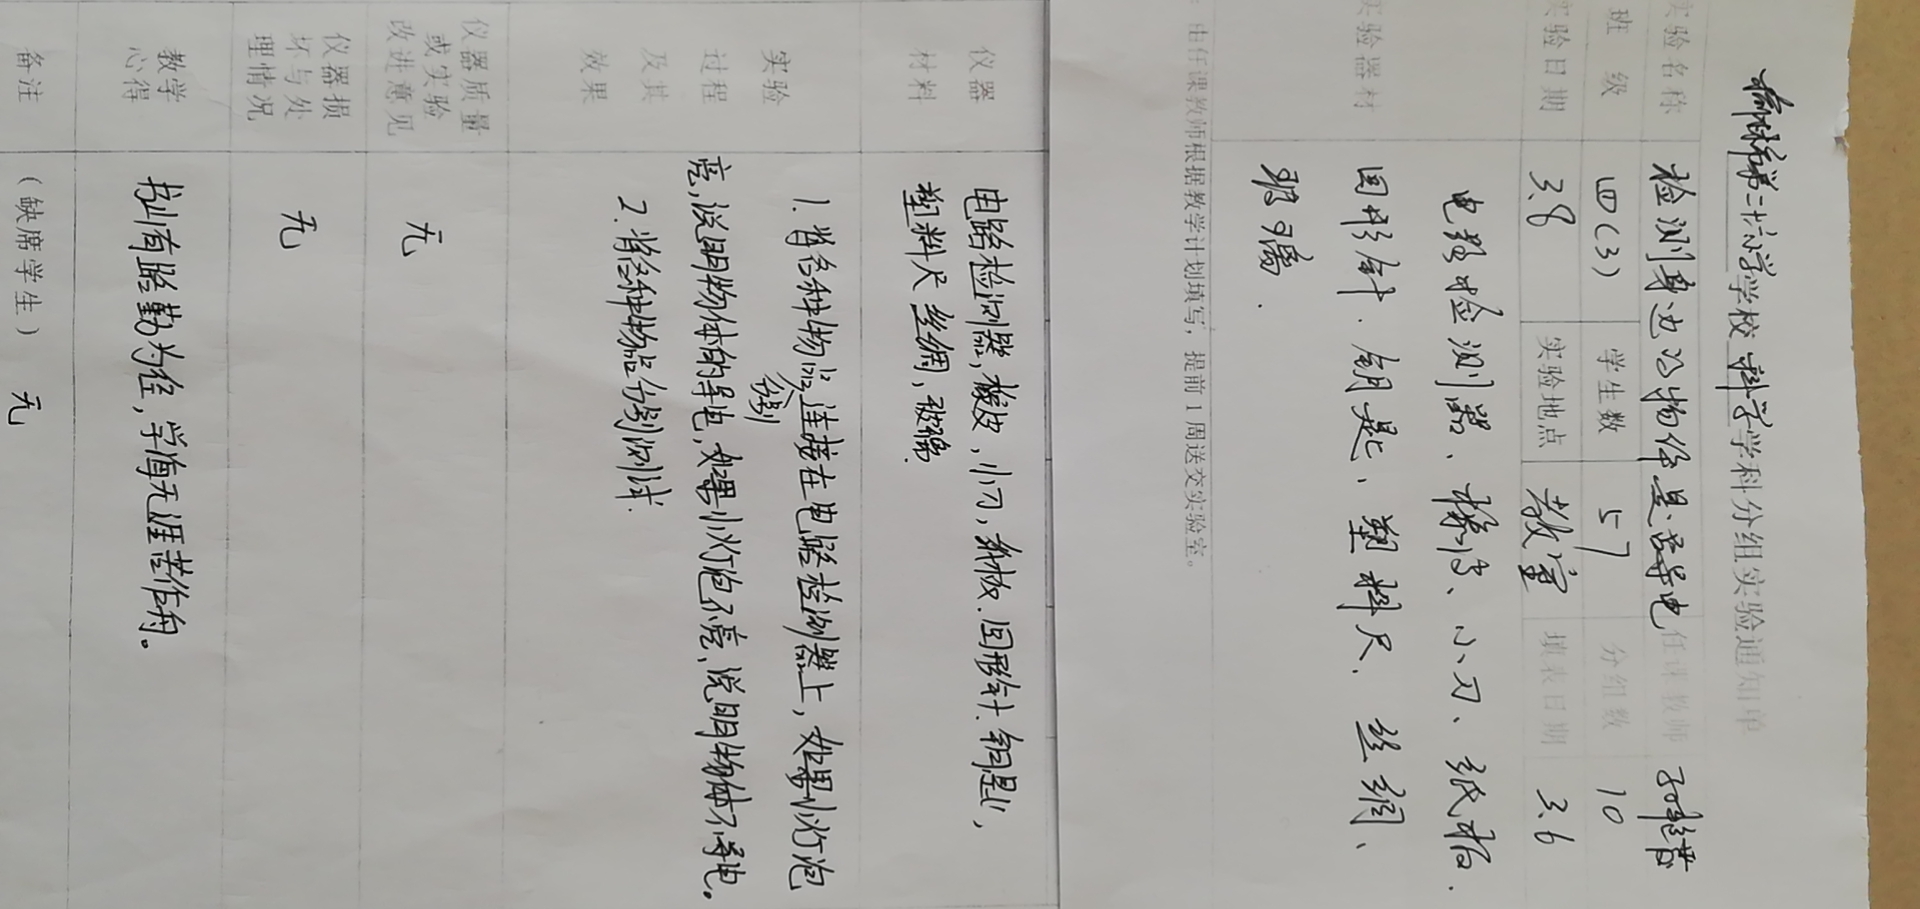 学校科学学科分组实验通知单
实验名称 检测身边的物体是否导电 任课教师
班 级 四(3) 学生数 57 分组数 10
实验日期 3.8 实验地点 教室 填表日期 3.6
实验器材 电路检测器、橡皮、小刀、纸板.
回形针.钥匙、塑料尺、丝绸、
玻璃.
由任课教师根据教学计划填写,提前1周送交实验室。
仪器 材料
电路检测器,橡皮,小刀,纸板.回形针.钥匙,
塑料尺 丝绸,玻璃.
实验 过程 及其 效果
1.将各种物品分别连接在电路检测器上,如果小灯泡
亮,说明物体的导电,如果小灯泡不亮,说明物体不导电。
2.将各种物品分别测试.
仪器质量 或实验 改进意见
无
仪器损 坏与处 理情况
无
教学 心得
书山有路勤为径,学海无涯苦作舟。
备注 (缺席学生) 无